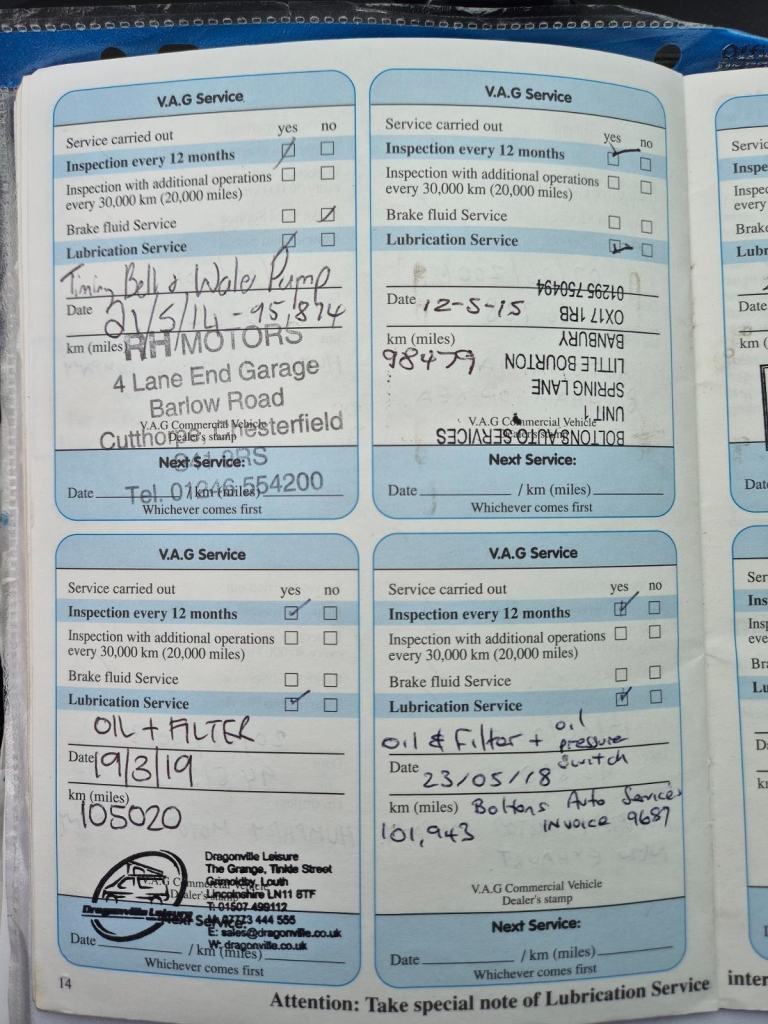 V.A.G Service
Service carried out yes no
Inspection every 12 months
Inspection with additional operations
every 30,000 km (20,000 miles)
Brake fluid Service
Lubrication Service
Timing Belt & Water Pump
Date 21/5/14 - 95,874
km (miles)
RH MOTORS
4 Lane End Garage
Barlow Road
Cutthorpe Chesterfield
V.A.G Commercial Vehicle
Dealer's stamp
Next Service:
Tel. 01246 554200
Date / km (miles)
Whichever comes first
V.A.G Service
Service carried out yes no
Inspection every 12 months
Inspection with additional operations
every 30,000 km (20,000 miles)
Brake fluid Service
Lubrication Service
Date 12-5-15
km (miles)
98479
BOLTONS AUTO SERVICES
UNIT 1
SPRING LANE
LITTLE BOURTON
BANBURY
OX17 1RB
01295 750494
V.A.G Commercial Vehicle
Dealer's stamp
Next Service:
Date / km (miles)
Whichever comes first
V.A.G Service
Service carried out yes no
Inspection every 12 months
Inspection with additional operations
every 30,000 km (20,000 miles)
Brake fluid Service
Lubrication Service
OIL + FILTER
Date 19/3/19
km (miles)
105020
Dragonville Leisure
The Grange, Tinkle Street
Grimoldby, Louth
Lincolnshire LN11 8TF
T: 01507 499112
M: 07773 444 555
E: sales@dragonville.co.uk
W: dragonville.co.uk
Dragonville Leisure
V.A.G Commercial Vehicle
Dealer's stamp
Next Service:
Date / km (miles)
Whichever comes first
V.A.G Service
Service carried out yes no
Inspection every 12 months
Inspection with additional operations
every 30,000 km (20,000 miles)
Brake fluid Service
Lubrication Service
Oil & Filter + oil
pressure
switch
Date 23/05/18
km (miles) Boltons Auto Services
101,943 invoice 9687
V.A.G Commercial Vehicle
Dealer's stamp
Next Service:
Date / km (miles)
Whichever comes first
14
Attention: Take special note of Lubrication Service inter